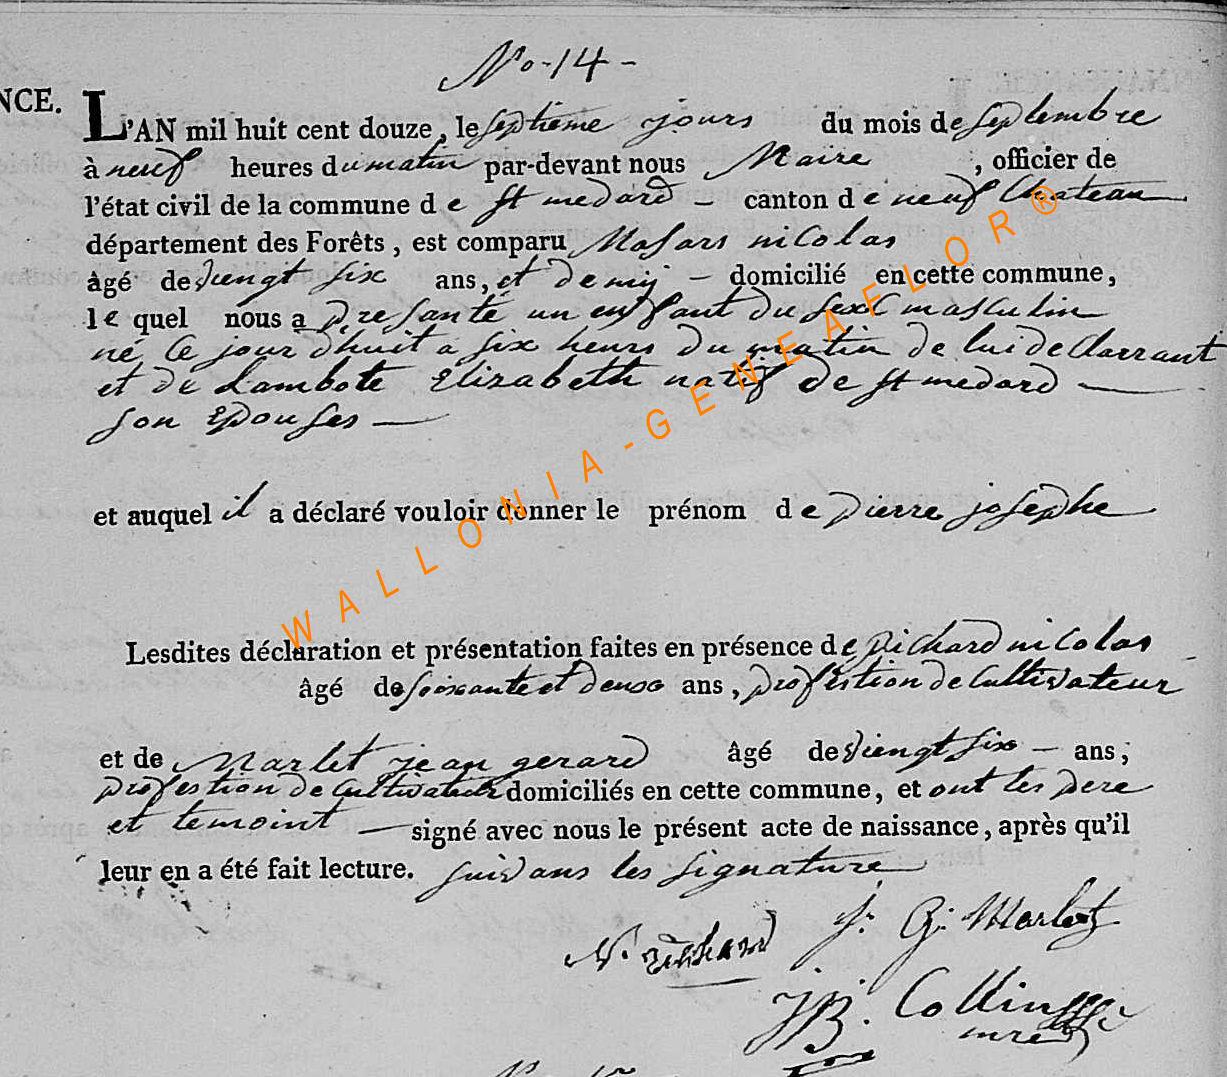 No. 14 -
NCE. L'AN mil huit cent douze, le septieme jours du mois de septembre
à neuf heures du matin par-devant nous Maire, officier de
l'état civil de la commune de st medard - canton de neuf Chateau
département des Forêts, est comparu Masars nicolas
âgé de viengt six ans, et demij - domicilié en cette commune,
le quel nous a presanté un enfant du sexe masculin
né ce jour dhuit a six heurs du matin de lui declarrant
et de Lambote Elizabeth natif de st medard -
son Epouses -
et auquel il a déclaré vouloir donner le prénom de pierre josephe
Lesdites déclaration et présentation faites en présence de Richard nicolas
âgé de soixante et deuse ans, profestion de Cultivateur
et de Marlet jean gerard âgé de viengt six - ans,
profestion de Cultivateur domiciliés en cette commune, et ont les pere
et temoint - signé avec nous le présent acte de naissance, après qu'il
leur en a été fait lecture. suivans les signature
N. richard J: G: Marlet
JB: Collin
mre
WALLONIA-GENEAFLOR®